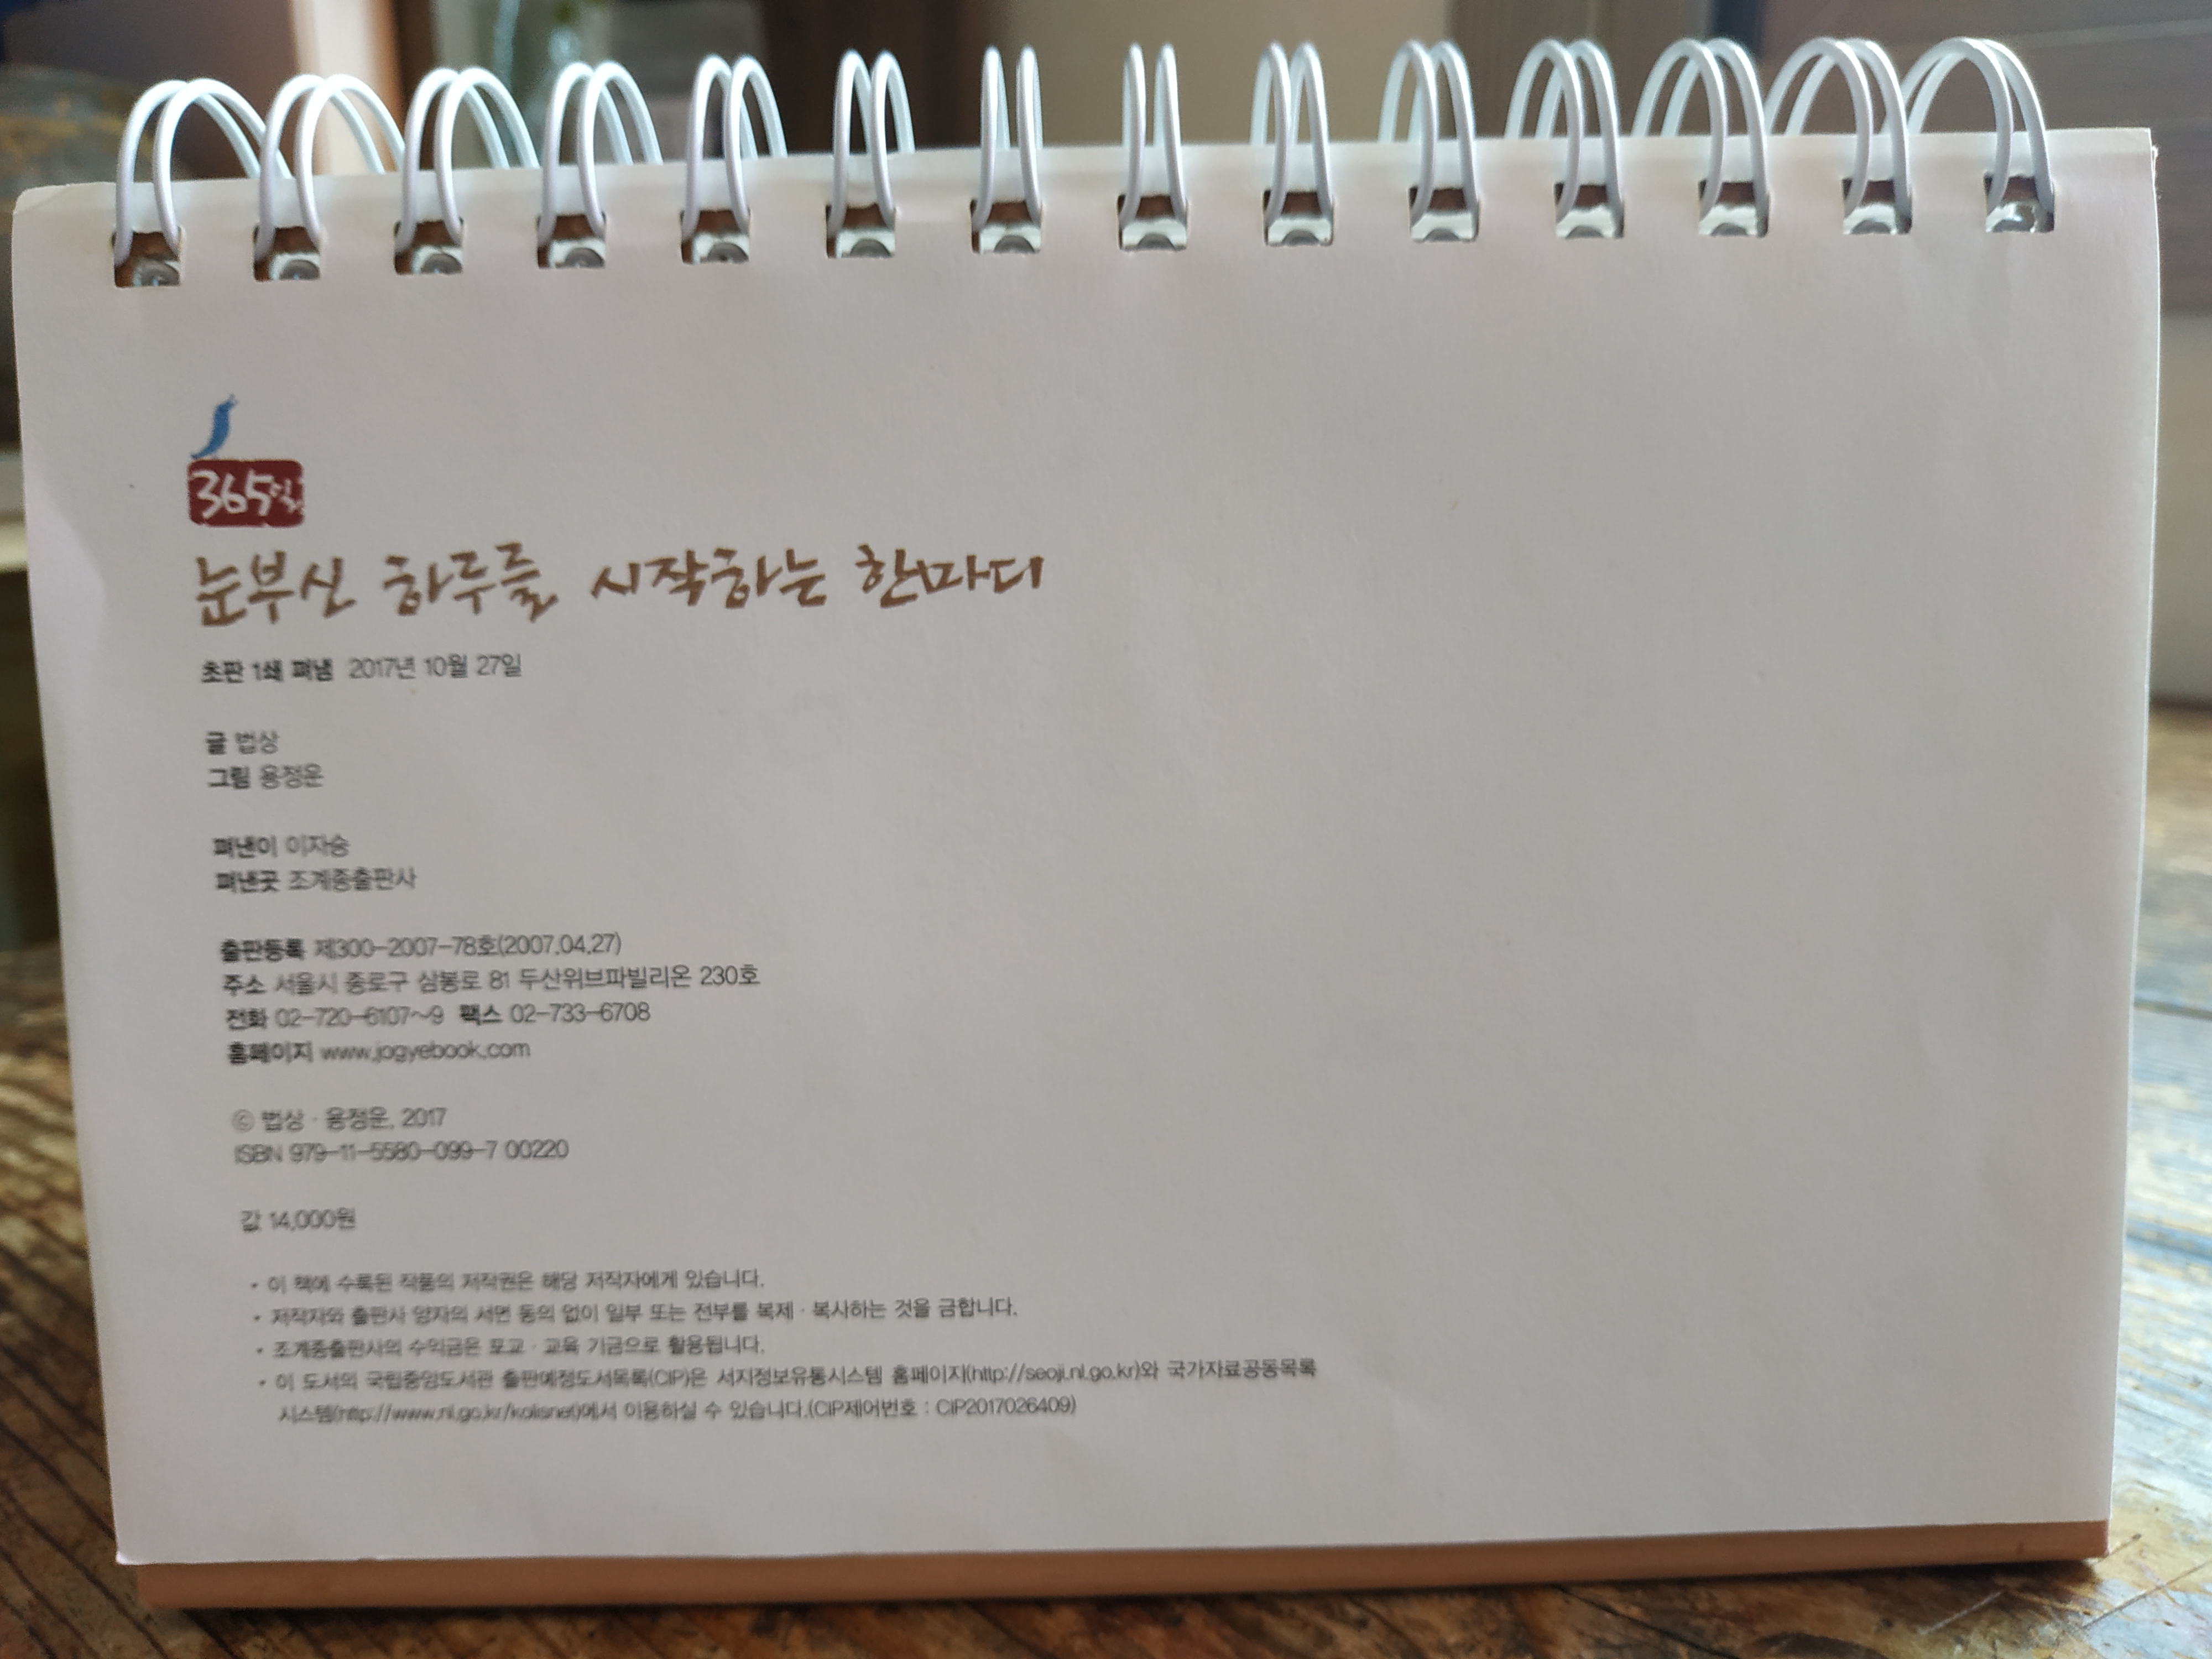 365일
눈부신 하루를 시작하는 한마디
초판 1쇄 펴냄 2017년 10월 27일
글 법상
그림 용정운
펴낸이 이자승
펴낸곳 조계종출판사
출판등록 제300-2007-78호(2007.04.27)
주소 서울시 종로구 삼봉로 81 두산위브파빌리온 230호
전화 02-720-6107~9 팩스 02-733-6708
홈페이지 www.jogyebook.com
ⓒ 법상 · 용정운, 2017
ISBN 979-11-5580-099-7 00220
값 14,000원
• 이 책에 수록된 작품의 저작권은 해당 저작자에게 있습니다.
• 저작자와 출판사 양자의 서면 동의 없이 일부 또는 전부를 복제 · 복사하는 것을 금합니다.
• 조계종출판사의 수익금은 포교 · 교육 기금으로 활용됩니다.
• 이 도서의 국립중앙도서관 출판예정도서목록(CIP)은 서지정보유통시스템 홈페이지(http://seoji.nl.go.kr)와 국가자료공동목록
시스템(http://www.nl.go.kr/kolisnet)에서 이용하실 수 있습니다.(CIP제어번호 : CIP2017026409)